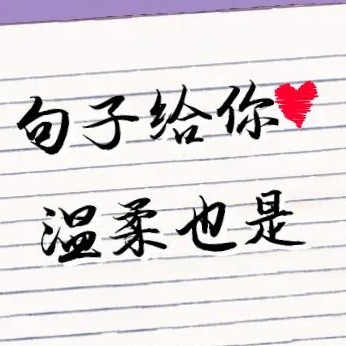 句子给你
温柔也是